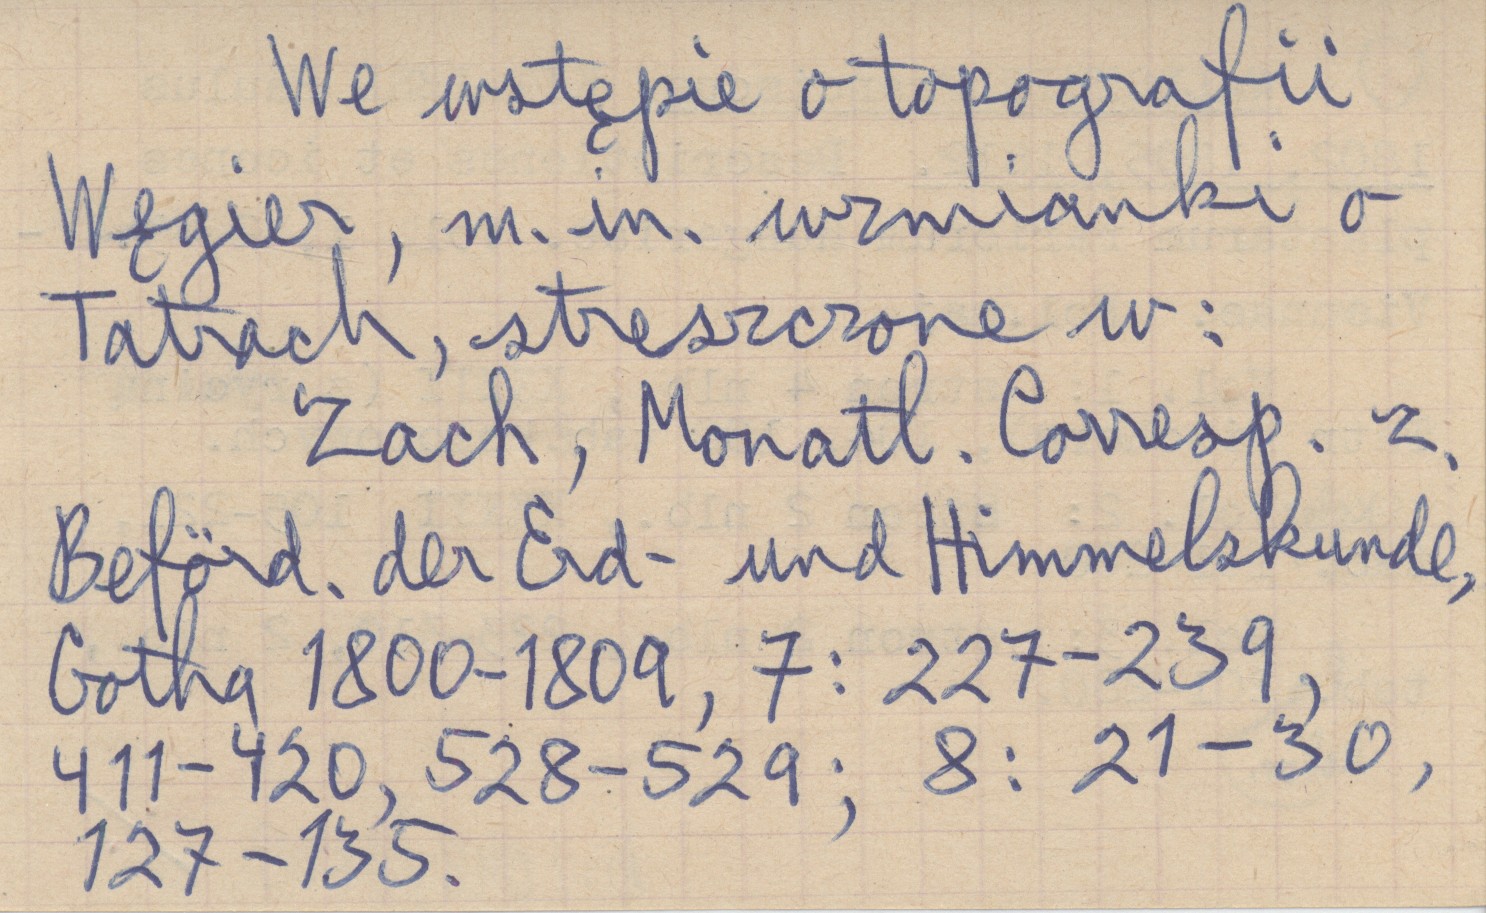 We wstępie o topografii
Węgier, m.in. wzmianki o
Tatrach, streszczone w:
Zach, Monatl. Corresp. z.
Beförd. der Erd- und Himmelskunde,
Gotha 1800-1809, 7: 227-239,
411-420, 528-529; 8: 21-30,
127-135.